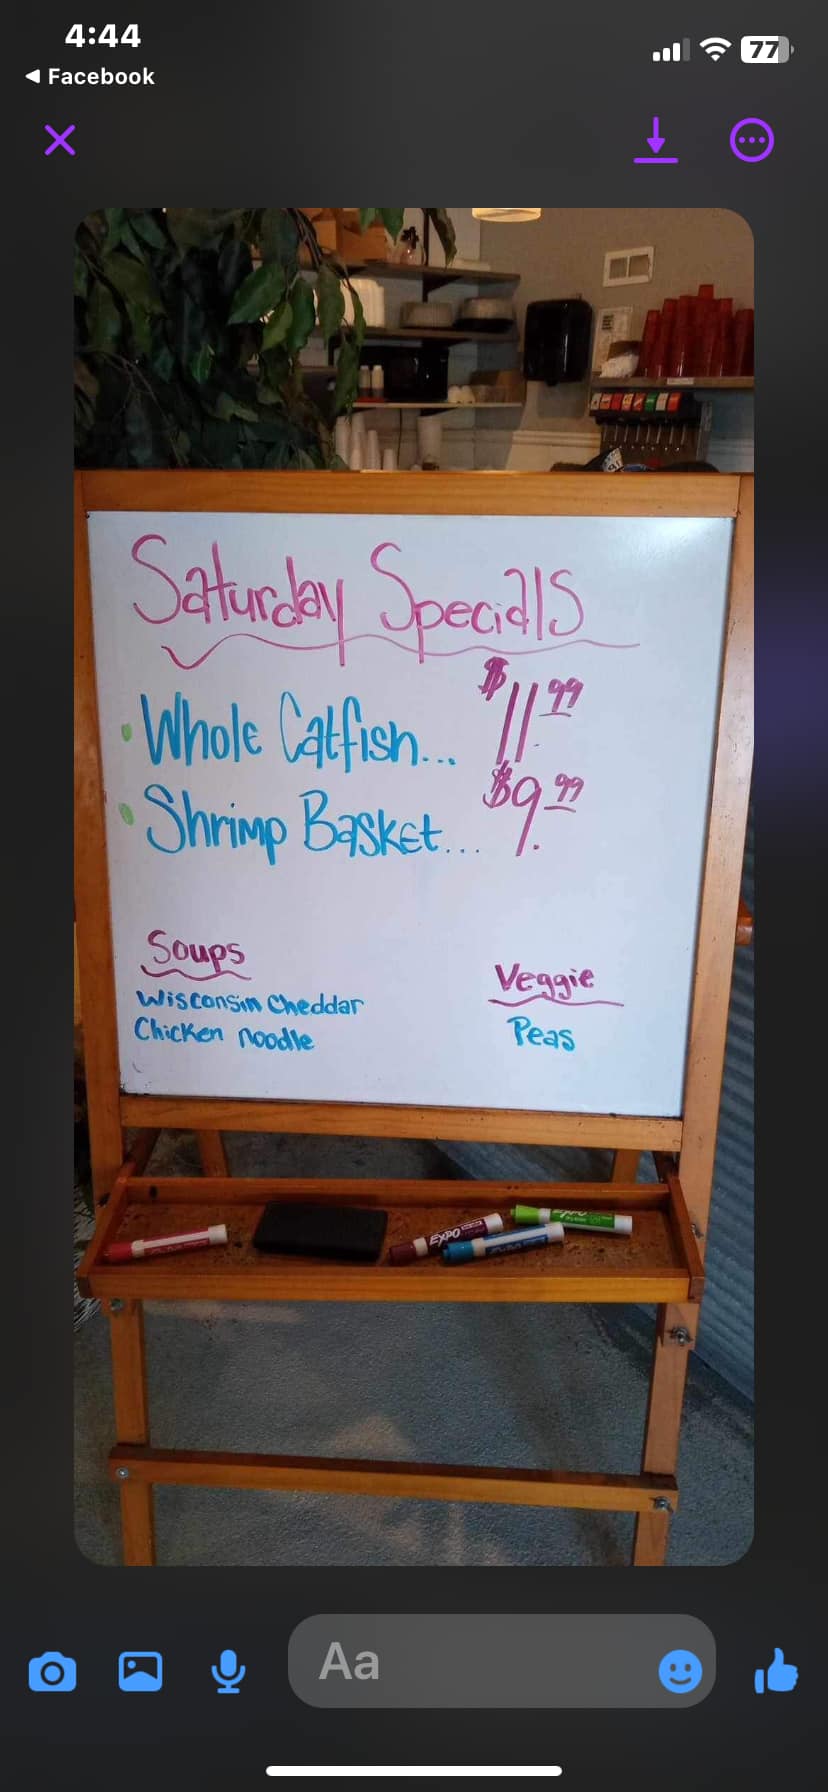 4:44
77
◀ Facebook
Saturday Specials
• Whole Catfish... $11.99
• Shrimp Basket... $9.99
Soups
Wisconsin Cheddar
Chicken noodle
Veggie
Peas
EXPO
Aa